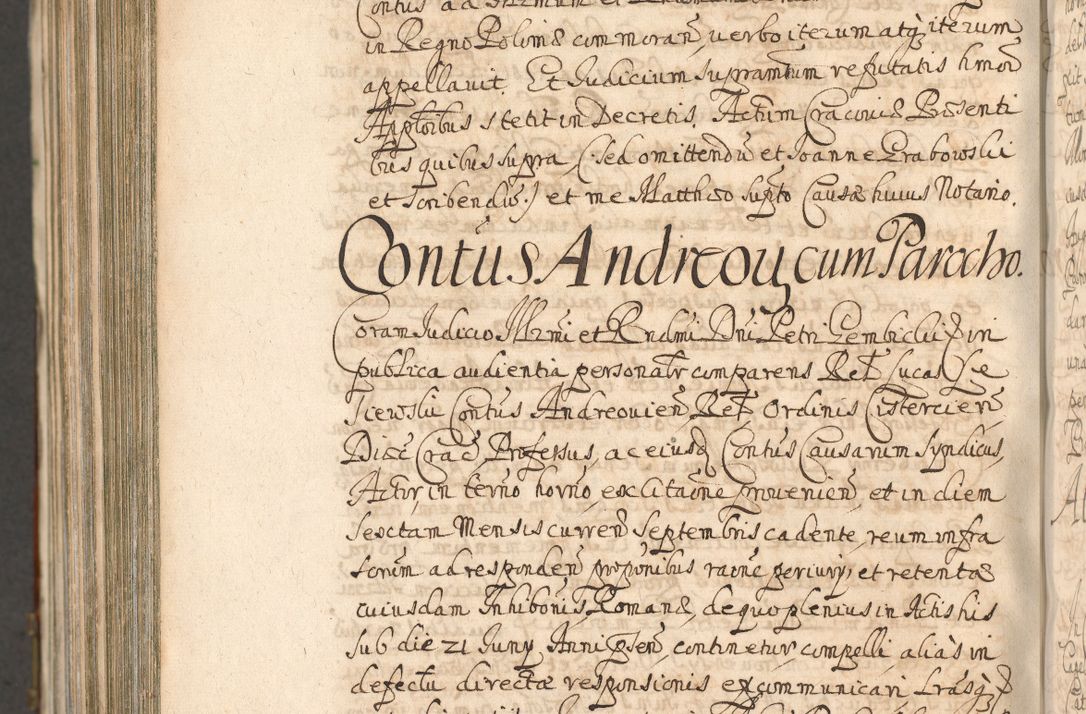 in Regno Poloniæ commoran, verbo iterum atq iterum
appellavit, Et Judicium supramtum refutatis hmoi
Aplõibus stetit in Decretis. Actum Cracoviæ Præsenti
bus quibus supra, (: sed omittendũ et Joanne Grabowski
et scribendũ :) et me Matthæo supto Causæ huius Notario.
Contus Andreoú, cum Parocho.
Coram Judicio Illrmi et Rndmi Dni Petri Gembicki in
publica audientia personalr comparens Rel Lucas
Contus Andreovien, Rel Ordinis Cistercien
Diæc Crac Professus, ac eiusq Contus Causarum Syndicus,
Actor, in termo horno, ex citaõne provenien, et in diem
sextam Mensis curren Septembris cadente, reum infra
scrium ad responden proponibus raõne periury, et retentæ
cuiusdam Inhibonis Romanæ, de quo plenius in Actis his
sub die 21 Juny, Anni psen, continetur compelli, aliàs in
defectu directæ responsionis excommunicari